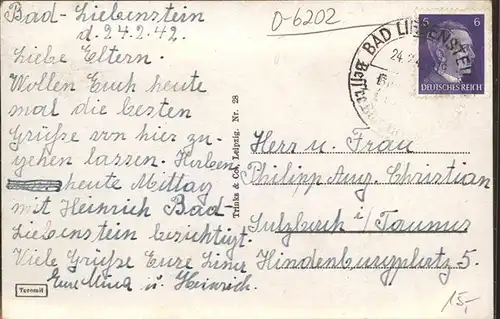 Bad-Liebenstein
d. 24.2.42.
Liebe Eltern.
Wollen Euch heute
mal die besten
Grüße von hier zu-
gehen lassen. Haben
heute Mittag
mit Heinrich Bad-
Liebenstein besichtigt.
Viele Grüße Eure
Eure Mina u. Heinrich.
Turomit
Trinks & Co., Leipzig. Nr. 28
D-6202
BAD LIEBENSTEIN
24.2
6 6
DEUTSCHES REICH
Herrn u. Frau
Philipp Aug. Christian
Sulzbach i/Taunus
Hindenburgplatz 5.
15,-